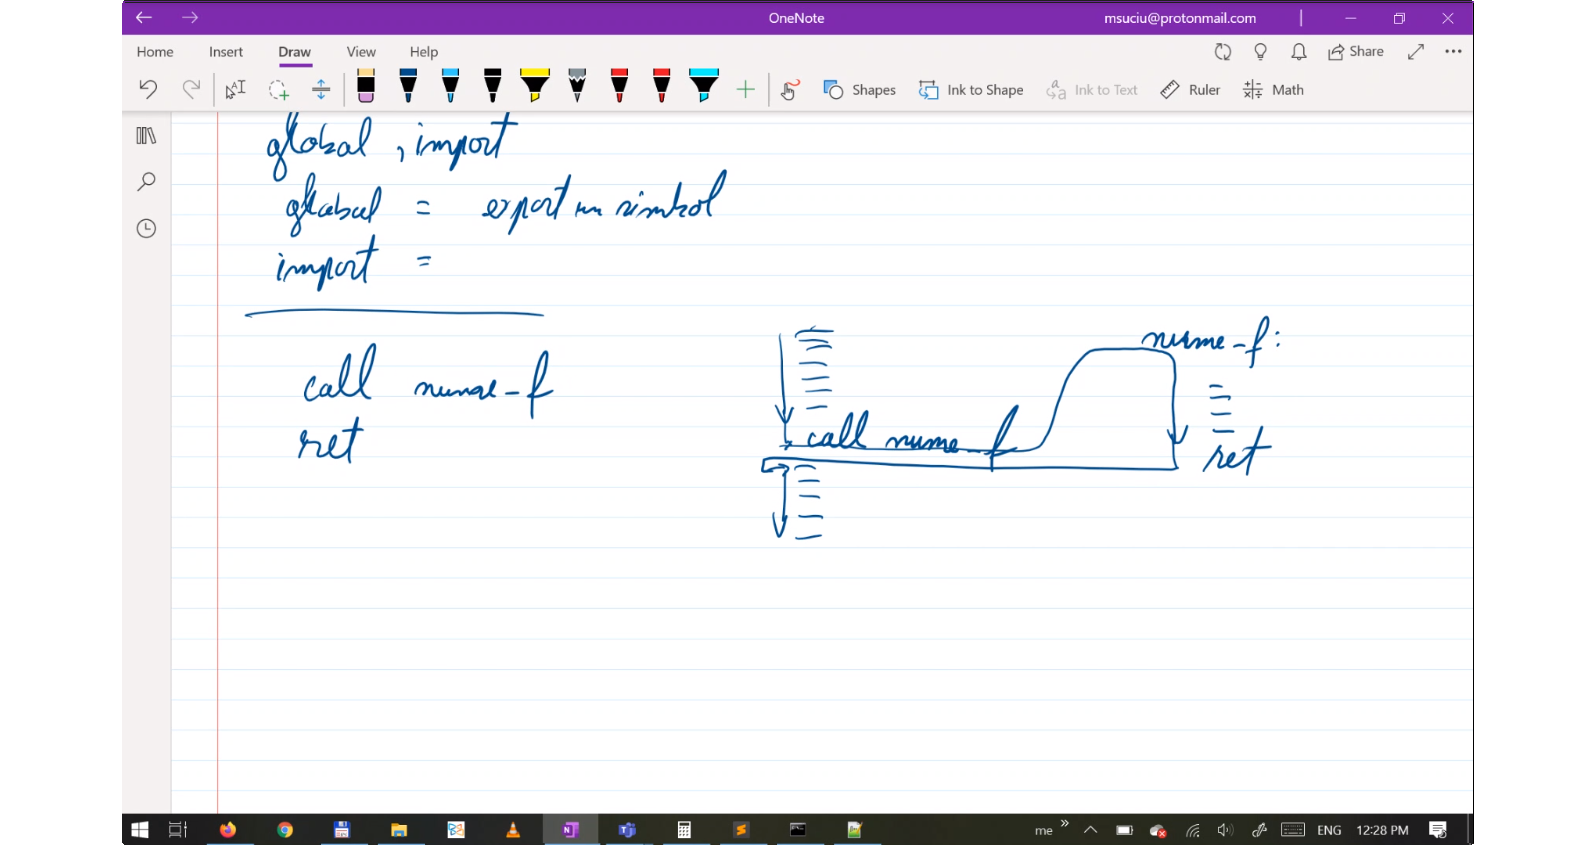 OneNote
msuciu@protonmail.com
Home Insert Draw View Help
Share
Shapes Ink to Shape Ink to Text Ruler Math
global , import
global = export un simbol
import =
call nume-f
ret
call nume-f
nume-f:
ret
me
ENG 12:28 PM